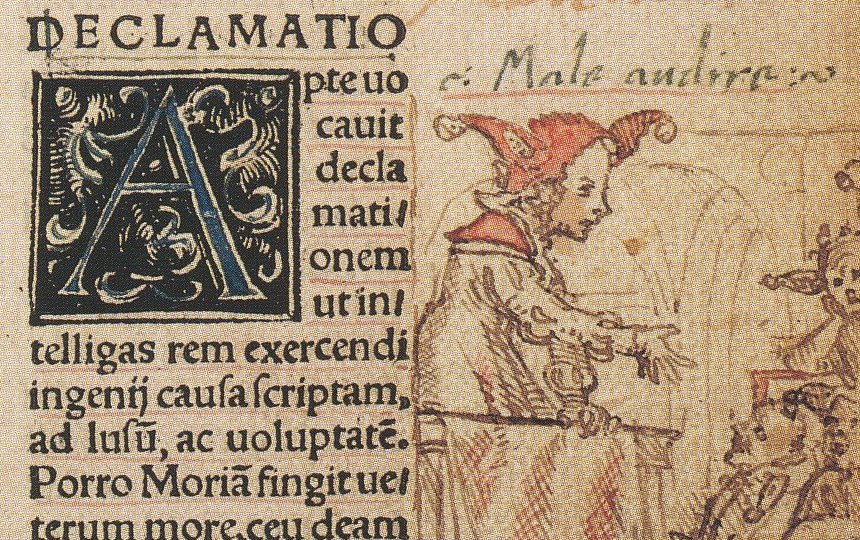 DECLAMATIO
Apte uo
cauit
decla
mati/
onem
ut in/
telligas rem exercendi
ingenij cauſa ſcriptam,
ad luſū, ac uoluptatē.
Porro Moriā fingit ue/
terum more, ceu deam
Male audire